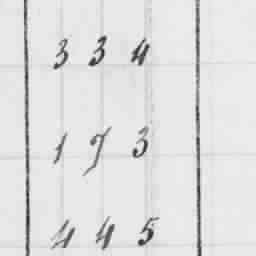 334
173
445